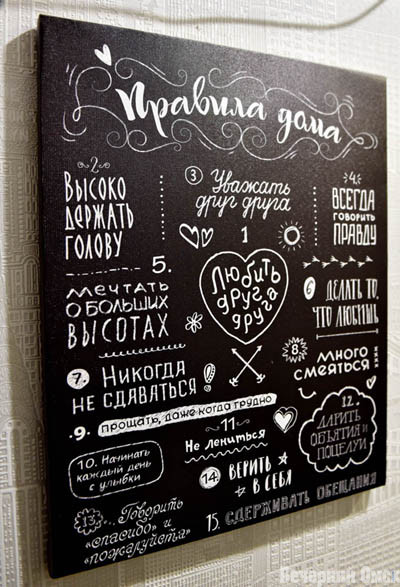 Правила дома
2
Высоко
держать
голову
3 Уважать
друг друга
4.
Всегда
говорить
правду
1
Любить
друг
друга
5.
Мечтать
о больших
высотах
6 Делать то,
что любишь
7. Никогда
не сдаваться!
8.
Много
смеяться
9. прощать, даже когда трудно
10. Начинать
каждый день
с улыбки
11
Не лениться
12.
Дарить
объятия и
поцелуи
13. Говорить
«спасибо» и
«пожалуйста»
14. Верить
в себя
15. Сдерживать обещания
Вечерний Омск